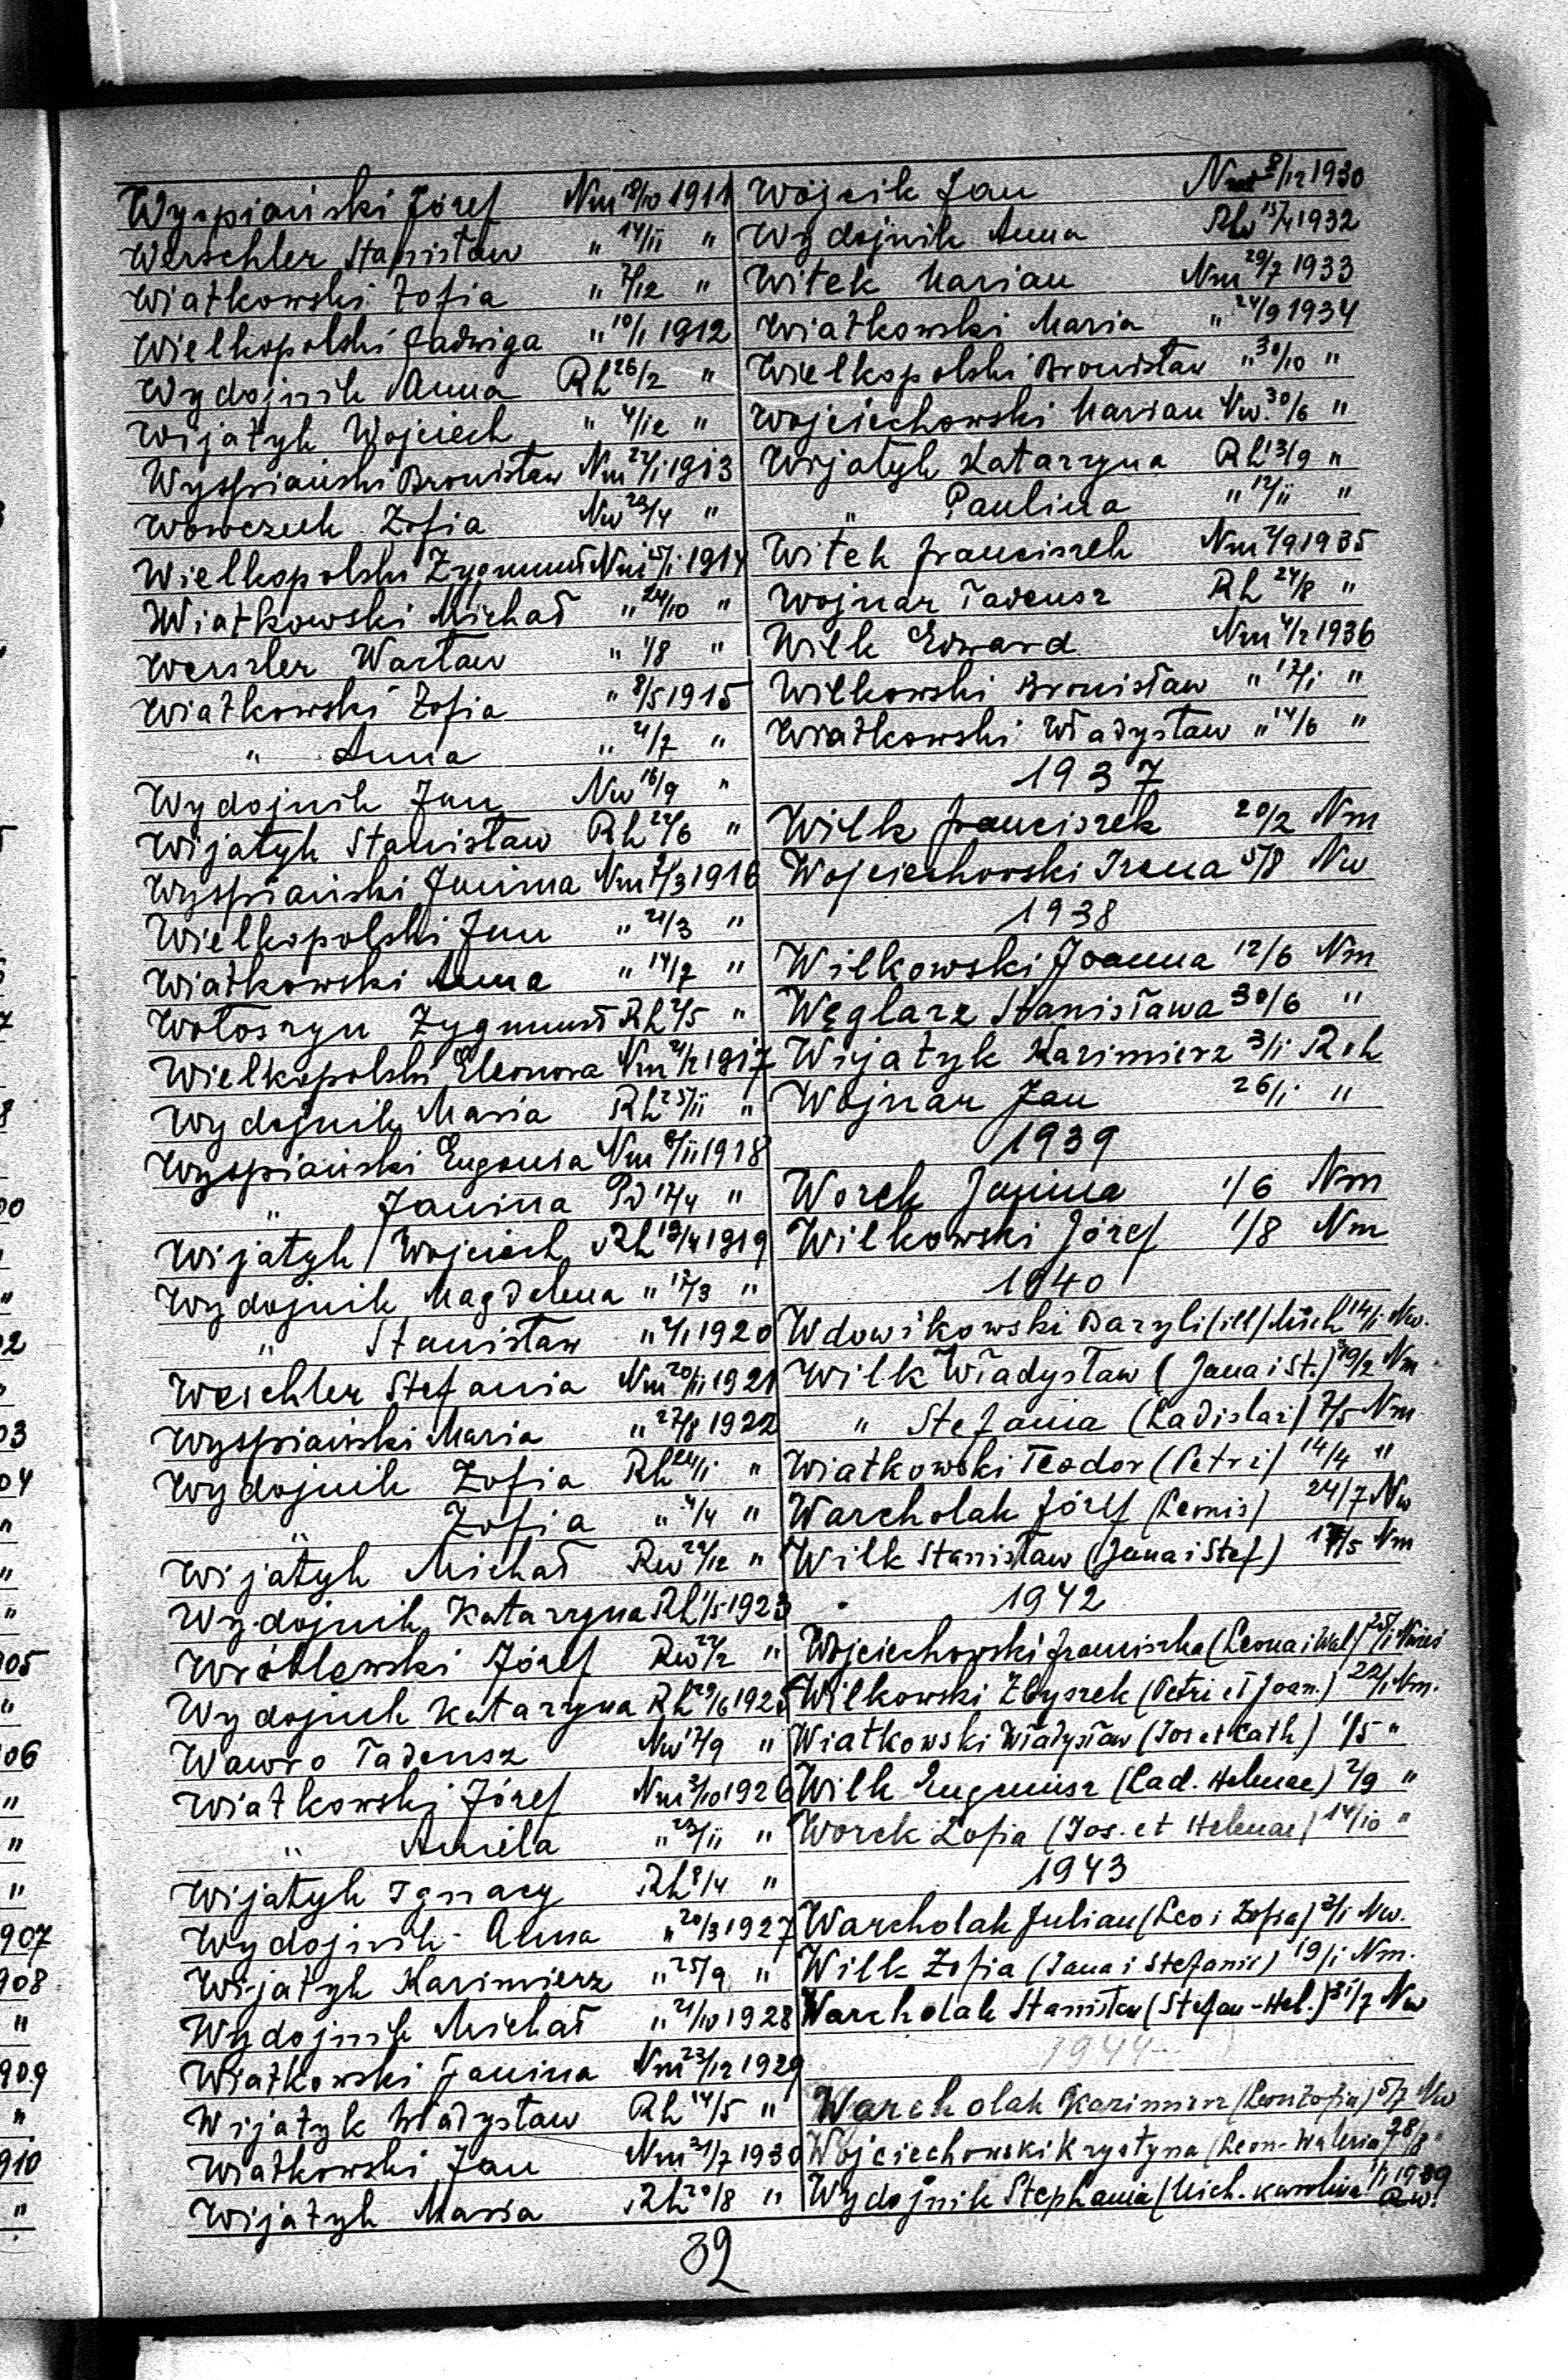 Wyspiański Józef Nm 18/10 1911
Werschler Stanisław " 14/11 "
Wiatkowski Zofia " 7/12 "
Wielkopolski Jadwiga " 10/1 1912
Wydojnik Anna Rh 26/2 "
Wijatyk Wojciech " 4/12 "
Wyspiański Bronisław Nm 22/1 1913
Wowczuk Zofia Nw 23/4 "
Wielkopolski Zygmunt Nm 15/1 1914
Wiatkowski Michał " 24/10 "
Werszler Wacław " 1/8 "
Wiatkowski Zofia " 8/5 1915
" Anna " 4/7 "
Wydojnik Jan Nw 16/9 "
Wijatyk Stanisław Rh 22/6 "
Wyspiański Janina Nm 1916
Wielkopolski Jan " 21/3 "
Wiatkowski Anna " 14/7 "
Wołoszyn Zygmunt Rh 2/5 "
Wielkopolski Eleonora Nm 21/2 1917
Wydojnik Maria Rh 25/11 "
Wyspiański Eugenia Nm 1918
" Janina 17/4 "
Wijatyk Wojciech Rh 19/4 1919
Wydojnik Magdalena " 17/3 "
" Stanisław " 2/1 1920
Weichler Stefania Nm 20/11 1921
Wyspiański Maria " 27/8 1922
Wydojnik Zofia Rh 24/1 "
" Zofia " 4/4 "
Wijatyk Michał Rw 22/12 "
Wydojnik Katarzyna Rh 1/5 1923
Wróblewski Józef Rw 22/2 "
Wydojnik Katarzyna Rh 29/6 1925
Wawro Tadeusz Nw 17/9 "
Wiatkowski Józef Nm 3/10 1926
" Aniela " 23/11 "
Wijatyk Ignacy Rh 8/4 "
Wydojnik Anna " 20/3 1927
Wijatyk Kazimierz " 25/9 "
Wydojnik Michał " 21/10 1928
Wiatkowski Janina Nm 23/12 1929
Wijatyk Władysław Rh 14/5 "
Wiatkowski Jan Nm 21/7 1930
Wijatyk Maria Rh 20/8 "
Wójcik Jan 8/12 1930
Wydojnik Anna 15/4 1932
Witek Marian Nm 29/7 1933
Wiatkowski Maria " 24/9 1934
Wielkopolski Bronisław " 30/10 "
Wojciechowski Marian Nw. 30/6 "
Wijatyk Katarzyna Rh 13/9 "
" Paulina " 12/11 "
Witek Franciszek Nm 2/9 1935
Wojnar Tadeusz Rh 24/8 "
Wilk Edward Nm 4/2 1936
Wilkowski Bronisław " 17/1 "
Wiatkowski Władysław " 14/6 "
1937
Wilk Franciszek 20/2 Nm
Wojciechowski Irena 5/8 Nw
1938
Wilkowski Joanna 12/6 Nm
Węglarz Stanisława 30/6 "
Wijatyk Kazimierz 3/1 Rch
Wojnar Jan 26/1 "
1939
Worek Janina 1/6 Nm
Wilkowski Józef 1/8 Nm
1940
Wdowikowski Bazyli (ill) Mich 14/1 Nw.
Wilk Władysław (Jana i St.) 19/2 Nm.
" Stefania (Ladislai) 7/5 Nm.
Wiatkowski Teodor (Petri) 14/4 "
Warcholak Józef (Leonis) 24/7 Nw
Wilk Stanisław (Jana i Stef) 17/5 Nm
1942
Wojciechowski Franciszka (Leona i Wal) 25/1
Wilkowski Zbyszek (Petri et Joan.) 22/1 Nm.
Wiatkowski Władysław (Jos et Cath) 1/5 "
Wilk Eugeniusz (Lad. Helenae) 2/9 "
Worek Zofia (Jos. et Helenae) 14/10 "
1943
Warcholak Julian (Leo i Zofia) 2/1 Nw.
Wilk Zofia (Jana i Stefanii) 19/1 Nm.
Warcholak Stanisław (Stefan-Hel.) 31/7 Nw
1944
Warcholak Kazimierz (Leon Zofia) 5/7 Nw
Wojciechowski Krystyna (Leon-Waleria) 28/8 "
Wydojnik Stephania (Mich. Karolina 1/1 1939
Rw.
39